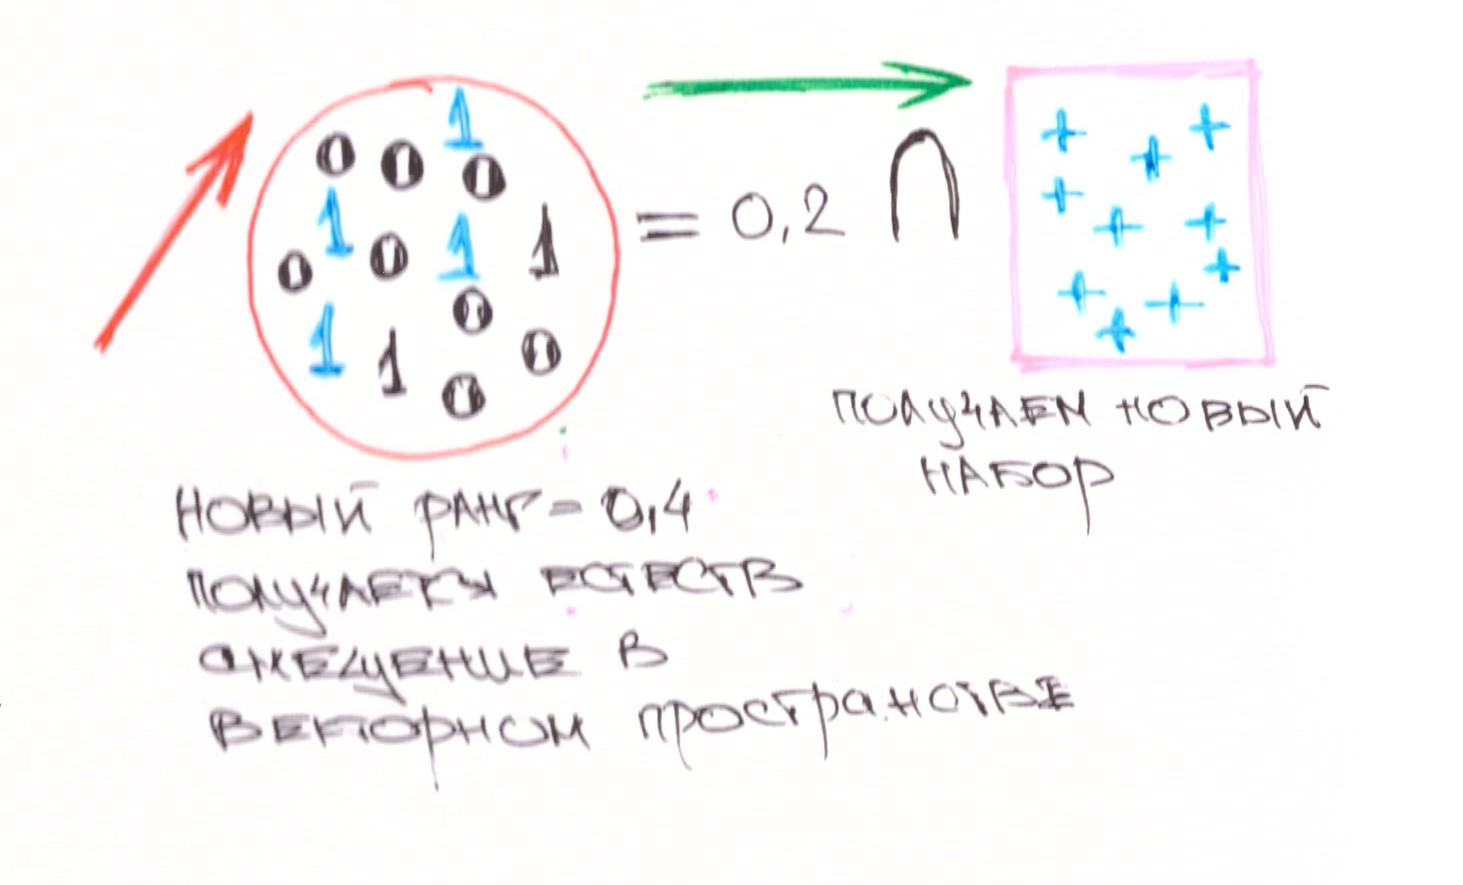 1
0 0 0
1 1 1
0 0
0
1 1 0
0
= 0,2 ∩
+ + +
+ + +
+
+ +
+
ПОЛУЧАЕМ НОВЫЙ
НАБОР
НОВЫЙ РАНГ = 0,4
ПОЛУЧАЕТСЯ ЕСТЕСТВ
СМЕЩЕНИЕ В
ВЕКТОРНОМ ПРОСТРАНСТВЕ